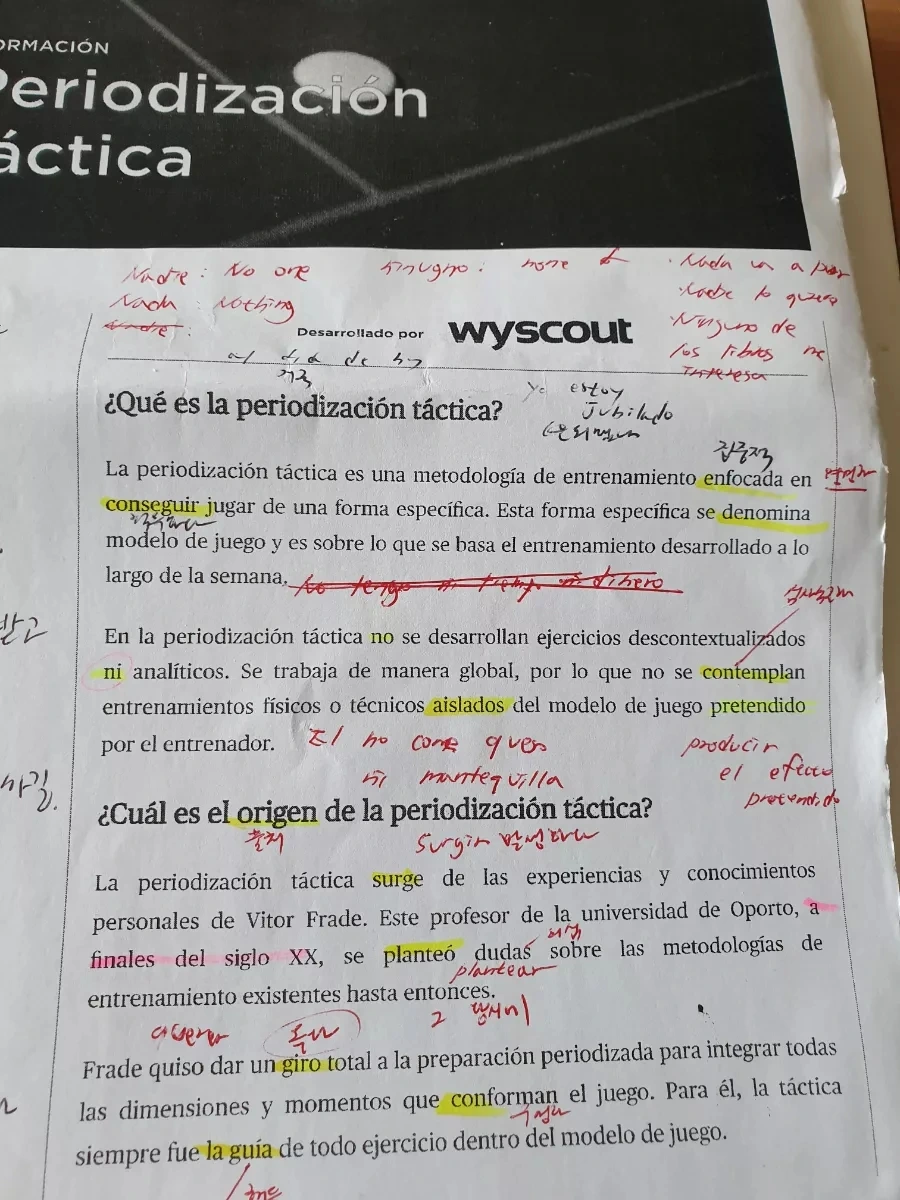 ORMACIÓN
Periodización
áctica
Nadie : No one
none
Nada : Nothing
Nadie :
Desarrollado por wyscout
Ninguno de
los libros me
interesa
al día de hoy
¿Qué es la periodización táctica?
Yo estoy
Jubilado
La periodización táctica es una metodología de entrenamiento enfocada en
conseguir jugar de una forma específica. Esta forma específica se denomina
modelo de juego y es sobre lo que se basa el entrenamiento desarrollado a lo
largo de la semana.
No tengo ni tiempo ni dinero
En la periodización táctica no se desarrollan ejercicios descontextualizados
ni analíticos. Se trabaja de manera global, por lo que no se contemplan
entrenamientos físicos o técnicos aislados del modelo de juego pretendido
por el entrenador.
El no come queso
ni mantequilla
producir
el efecto
pretendido
¿Cuál es el origen de la periodización táctica?
출처
Surgir 발생하다
La periodización táctica surge de las experiencias y conocimientos
personales de Vitor Frade. Este profesor de la universidad de Oporto, a
finales del siglo XX, se planteó dudas sobre las metodologías de
plantear
entrenamiento existentes hasta entonces.
Frade quiso dar un giro total a la preparación periodizada para integrar todas
las dimensiones y momentos que conforman el juego. Para él, la táctica
siempre fue la guía de todo ejercicio dentro del modelo de juego.